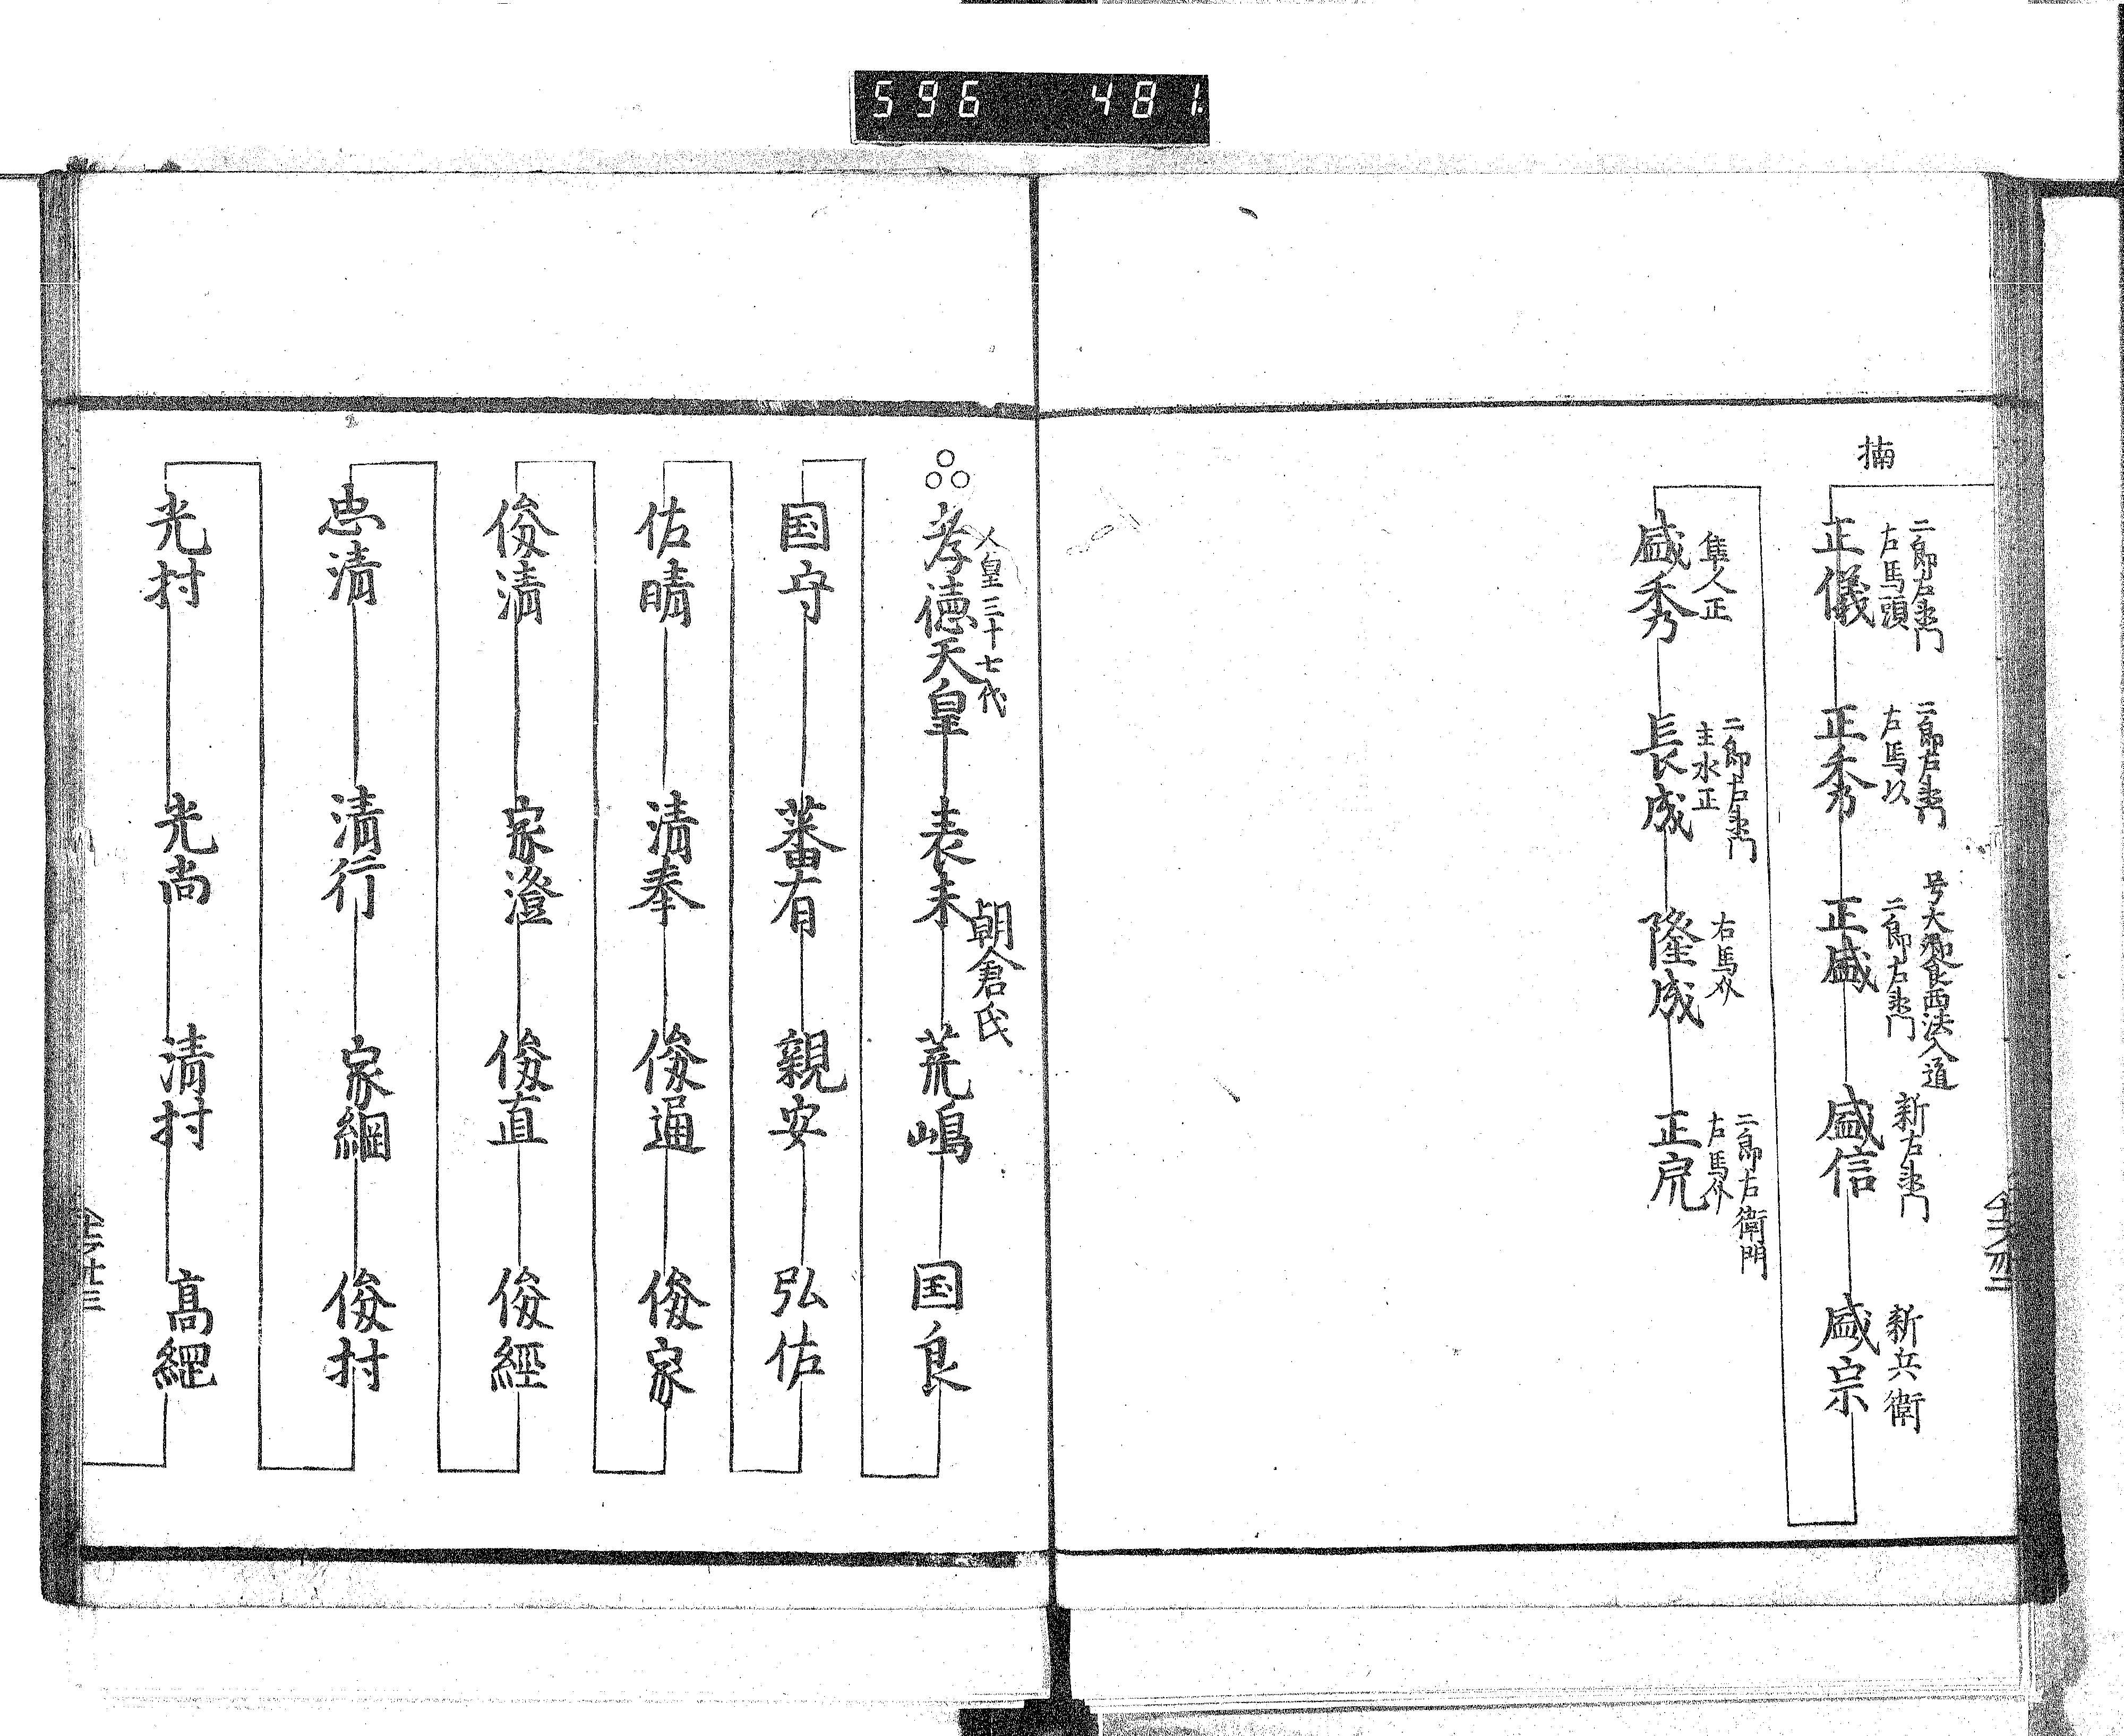 596 481
楠
二郎左衛門
左馬頭
正儀
二郎左衛門
左馬助
正秀
号大和食西法入道
二郎左衛門
正盛
新左衛門
盛信
新兵衛
盛宗
隼人正
盛秀
二郎左衛門
主水正
長成
右馬介
隆成
二郎右衛門
左馬介
正虎
人皇三十七代
孝徳天皇
表未
朝倉氏
荒嶋
国良
国守
蕃有
親安
弘佑
佑晴
清奉
俊通
俊家
俊清
家澄
俊直
俊經
忠清
清行
家綱
俊村
光村
光尚
清村
高縄